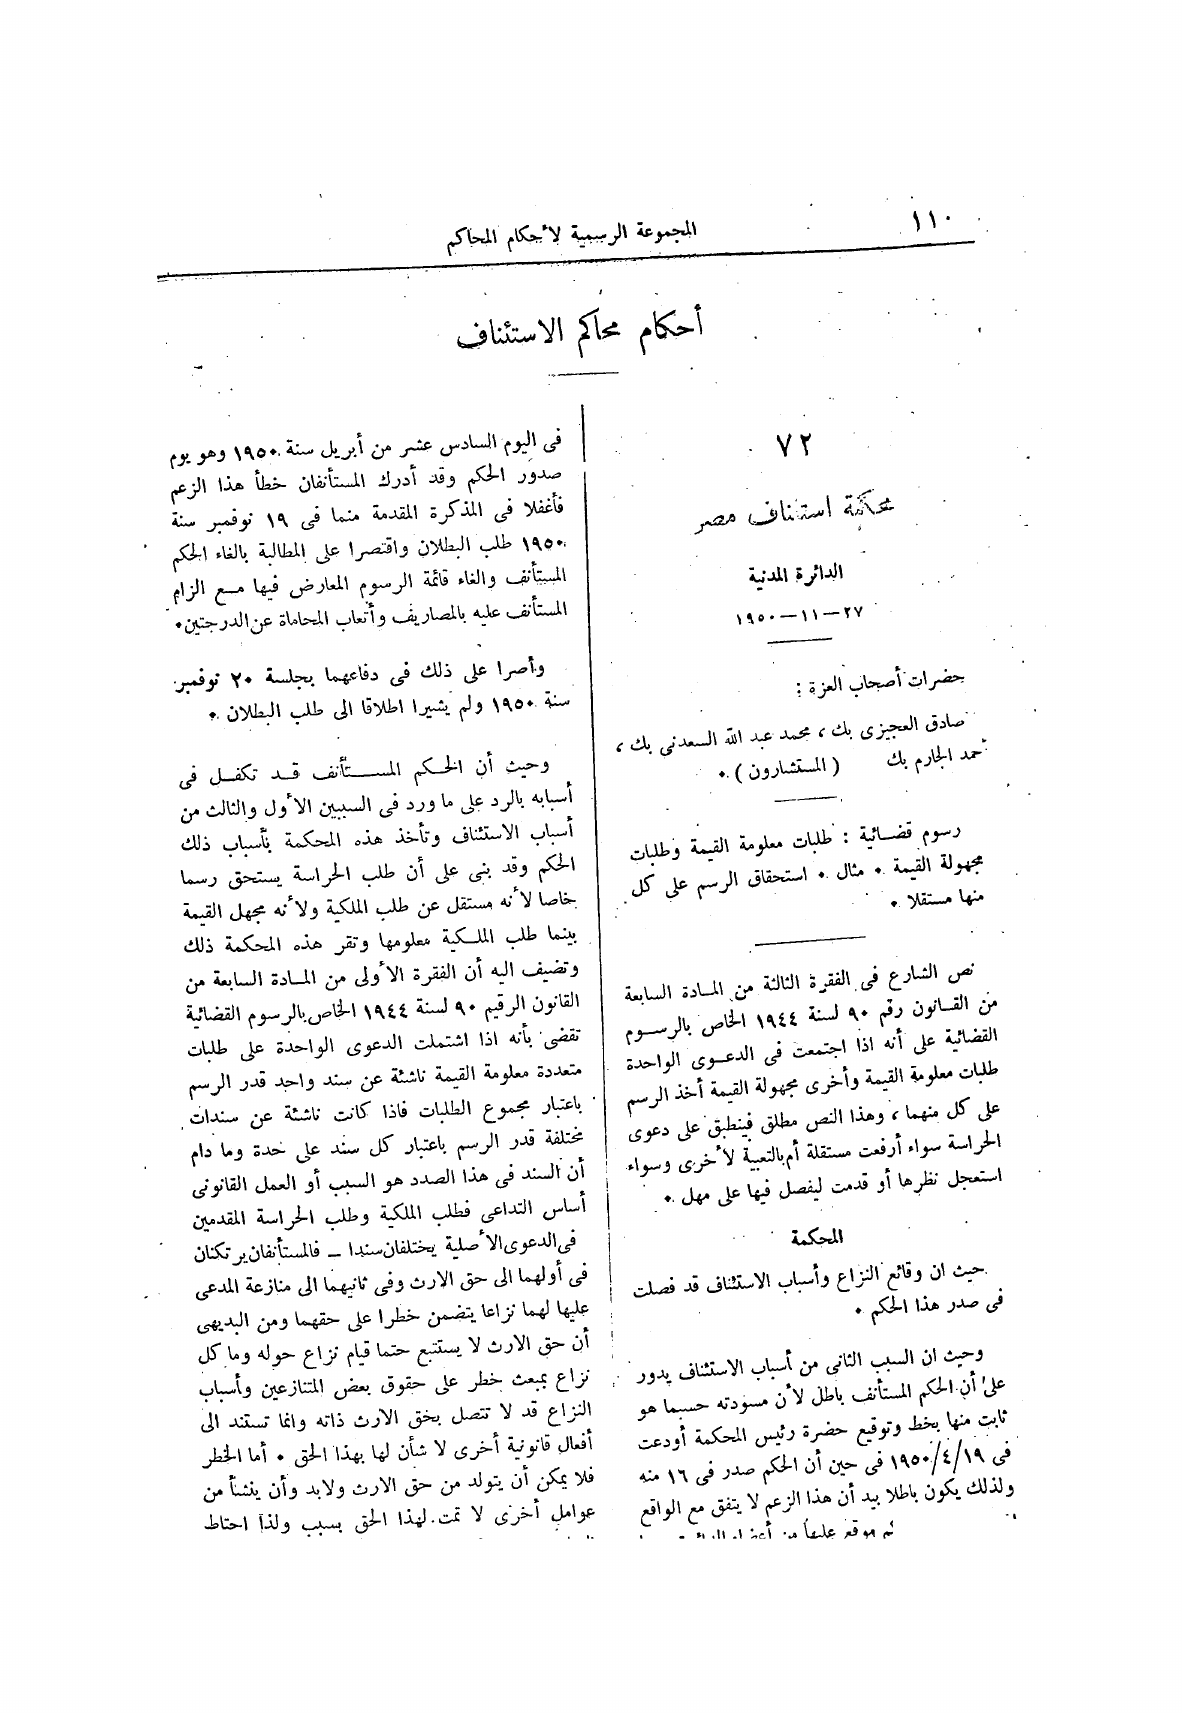 ١١٠
المجموعة الرسمية لأحكام المحاكم
أحكام محاكم الاستئناف
٧٢
محكمة استئناف مصر
الدائرة المدنية
٢٧ – ١١ – ١٩٥٠
حضرات أصحاب العزة :
صادق العجيزى بك ، محمد عبد الله السعدنى بك ،
أحمد الجارم بك ( المستشارون ) .
رسوم قضائية : طلبات معلومة القيمة وطلبات
مجهولة القيمة . مثال . استحقاق الرسم على كل
منها مستقلا .
نص الشارع فى الفقرة الثالثة من المادة السابعة
من القانون رقم ٩٠ لسنة ١٩٤٤ الخاص بالرسوم
القضائية على أنه اذا اجتمعت فى الدعوى الواحدة
طلبات معلومة القيمة وأخرى مجهولة القيمة أخذ الرسم
على كل منهما ، وهذا النص مطلق فينطبق على دعوى
الحراسة سواء أرفعت مستقلة أم بالتعبية لأخرى وسواء
استعجل نظرها أو قدمت ليفصل فيها على مهل .
المحكمة
حيث ان وقائع النزاع وأسباب الاستئناف قد فصلت
فى صدر هذا الحكم .
وحيث ان السبب الثانى من أسباب الاستئناف يدور
على أن الحكم المستأنف باطل لأن مسودته حسبما هو
ثابت منها بخط وتوقيع حضرة رئيس المحكمة أودعت
فى ١٩٥٠/٤/١٩ فى حين أن الحكم صدر فى ١٦ منه
ولذلك يكون باطلا بيد أن هذا الزعم لا يتفق مع الواقع
موقع عليها من أعضاء الدائرة
فى اليوم السادس عشر من أبريل سنة ١٩٥٠ وهو يوم
صدور الحكم وقد أدرك المستأنفان خطأ هذا الزعم
فأغفلا فى المذكرة المقدمة منهما فى ١٩ نوفمبر سنة
١٩٥٠ طلب البطلان واقتصرا على المطالبة بالغاء الحكم
المستأنف والغاء قائمة الرسوم المعارض فيها مع الزام
المستأنف عليه بالمصاريف وأتعاب المحاماة عن الدرجتين .
وأصرا على ذلك فى دفاعهما بجلسة ٢٠ نوفمبر
سنة ١٩٥٠ ولم يشيرا اطلاقا الى طلب البطلان .
وحيث أن الحكم المستأنف قد تكفل فى
أسبابه بالرد على ما ورد فى السببين الأول والثالث من
أسباب الاستئناف وتأخذ هذه المحكمة بأسباب ذلك
الحكم وقد بنى على أن طلب الحراسة يستحق رسما
خاصا لأنه مستقل عن طلب الملكية ولأنه مجهل القيمة
بينما طلب الملكية معلومها وتقر هذه المحكمة ذلك
وتضيف اليه أن الفقرة الأولى من المادة السابعة من
القانون الرقيم ٩٠ لسنة ١٩٤٤ الخاص بالرسوم القضائية
تقضى بأنه اذا اشتملت الدعوى الواحدة على طلبات
متعددة معلومة القيمة ناشئة عن سند واحد قدر الرسم
باعتبار مجموع الطلبات فاذا كانت ناشئة عن سندات
مختلفة قدر الرسم باعتبار كل سند على حدة وما دام
أن السند فى هذا الصدد هو السبب أو العمل القانونى
أساس التداعى فطلب الملكية وطلب الحراسة المقدمين
فى الدعوى الأصلية يختلفان سندا – فالمستأنفان يرتكنان
فى أولهما الى حق الارث وفى ثانيهما الى منازعة المدعى
عليها لهما نزاعا يتضمن خطرا على حقهما ومن البديهى
أن حق الارث لا يستتبع حتما قيام نزاع حوله وما كل
نزاع بمبعث خطر على حقوق بعض المتنازعين وأسباب
النزاع قد لا تتصل بحق الارث ذاته وانما تستند الى
أفعال قانونية أخرى لا شأن لها بهذا الحق . أما الخطر
فلا يمكن أن يتولد من حق الارث ولابد وأن ينشأ من
عوامل أخرى لا تمت لهذا الحق بسبب ولذا احتاط